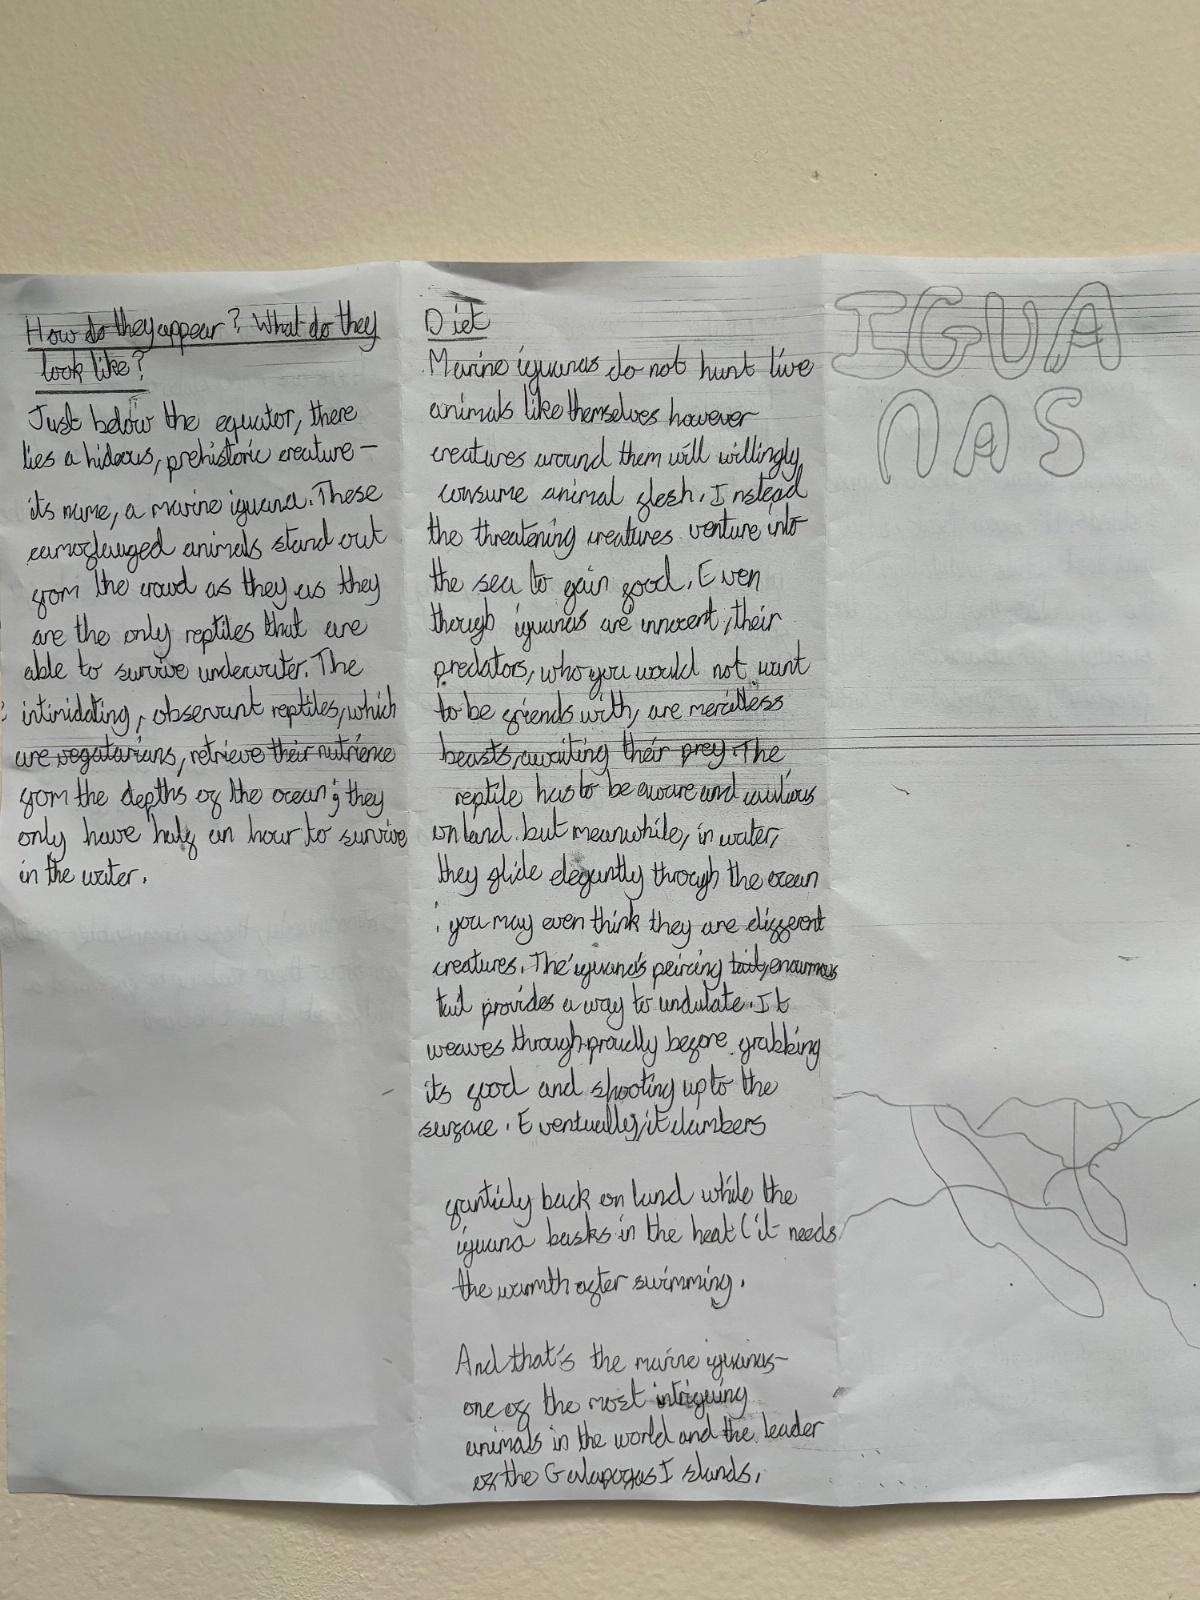 How do they appear? What do they
look like?
Just below the equator, there
lies a hideous, prehistoric creature –
its name, a marine iguana. These
camoflauged animals stand out
from the crowd as they as they
are the only reptiles that are
able to survive underwater. The
intimidating, observant reptiles, which
are vegatarians, retrieve their nutrience
from the depths of the ocean; they
only have half an hour to survive
in the water.
Diet
Marine iguanas do not hunt live
animals like themselves however
creatures around them will willingly
consume animal flesh. Instead
the threatening creatures venture into
the sea to gain food. Even
though iguanas are innocent, their
predators, who you would not want
to be friends with, are
beasts, awaiting their prey. The
reptile has to be aware and cautious
on land. but meanwhile, in water,
they glide elegantly through the ocean
; you may even think they are different
creatures. The iguana's peircing tail, enourmos
tail provides a way to undulate. It
weaves through proudly before grabbing
its food and shooting up to the
surface. Eventually, it clambers
back on land while the
iguana basks in the heat (it needs
the warmth after swimming.
And that's the marine iguanas –
one of the most intriguing
animals in the world and the leader
of the Galapogas Islands.
IGUA
NAS